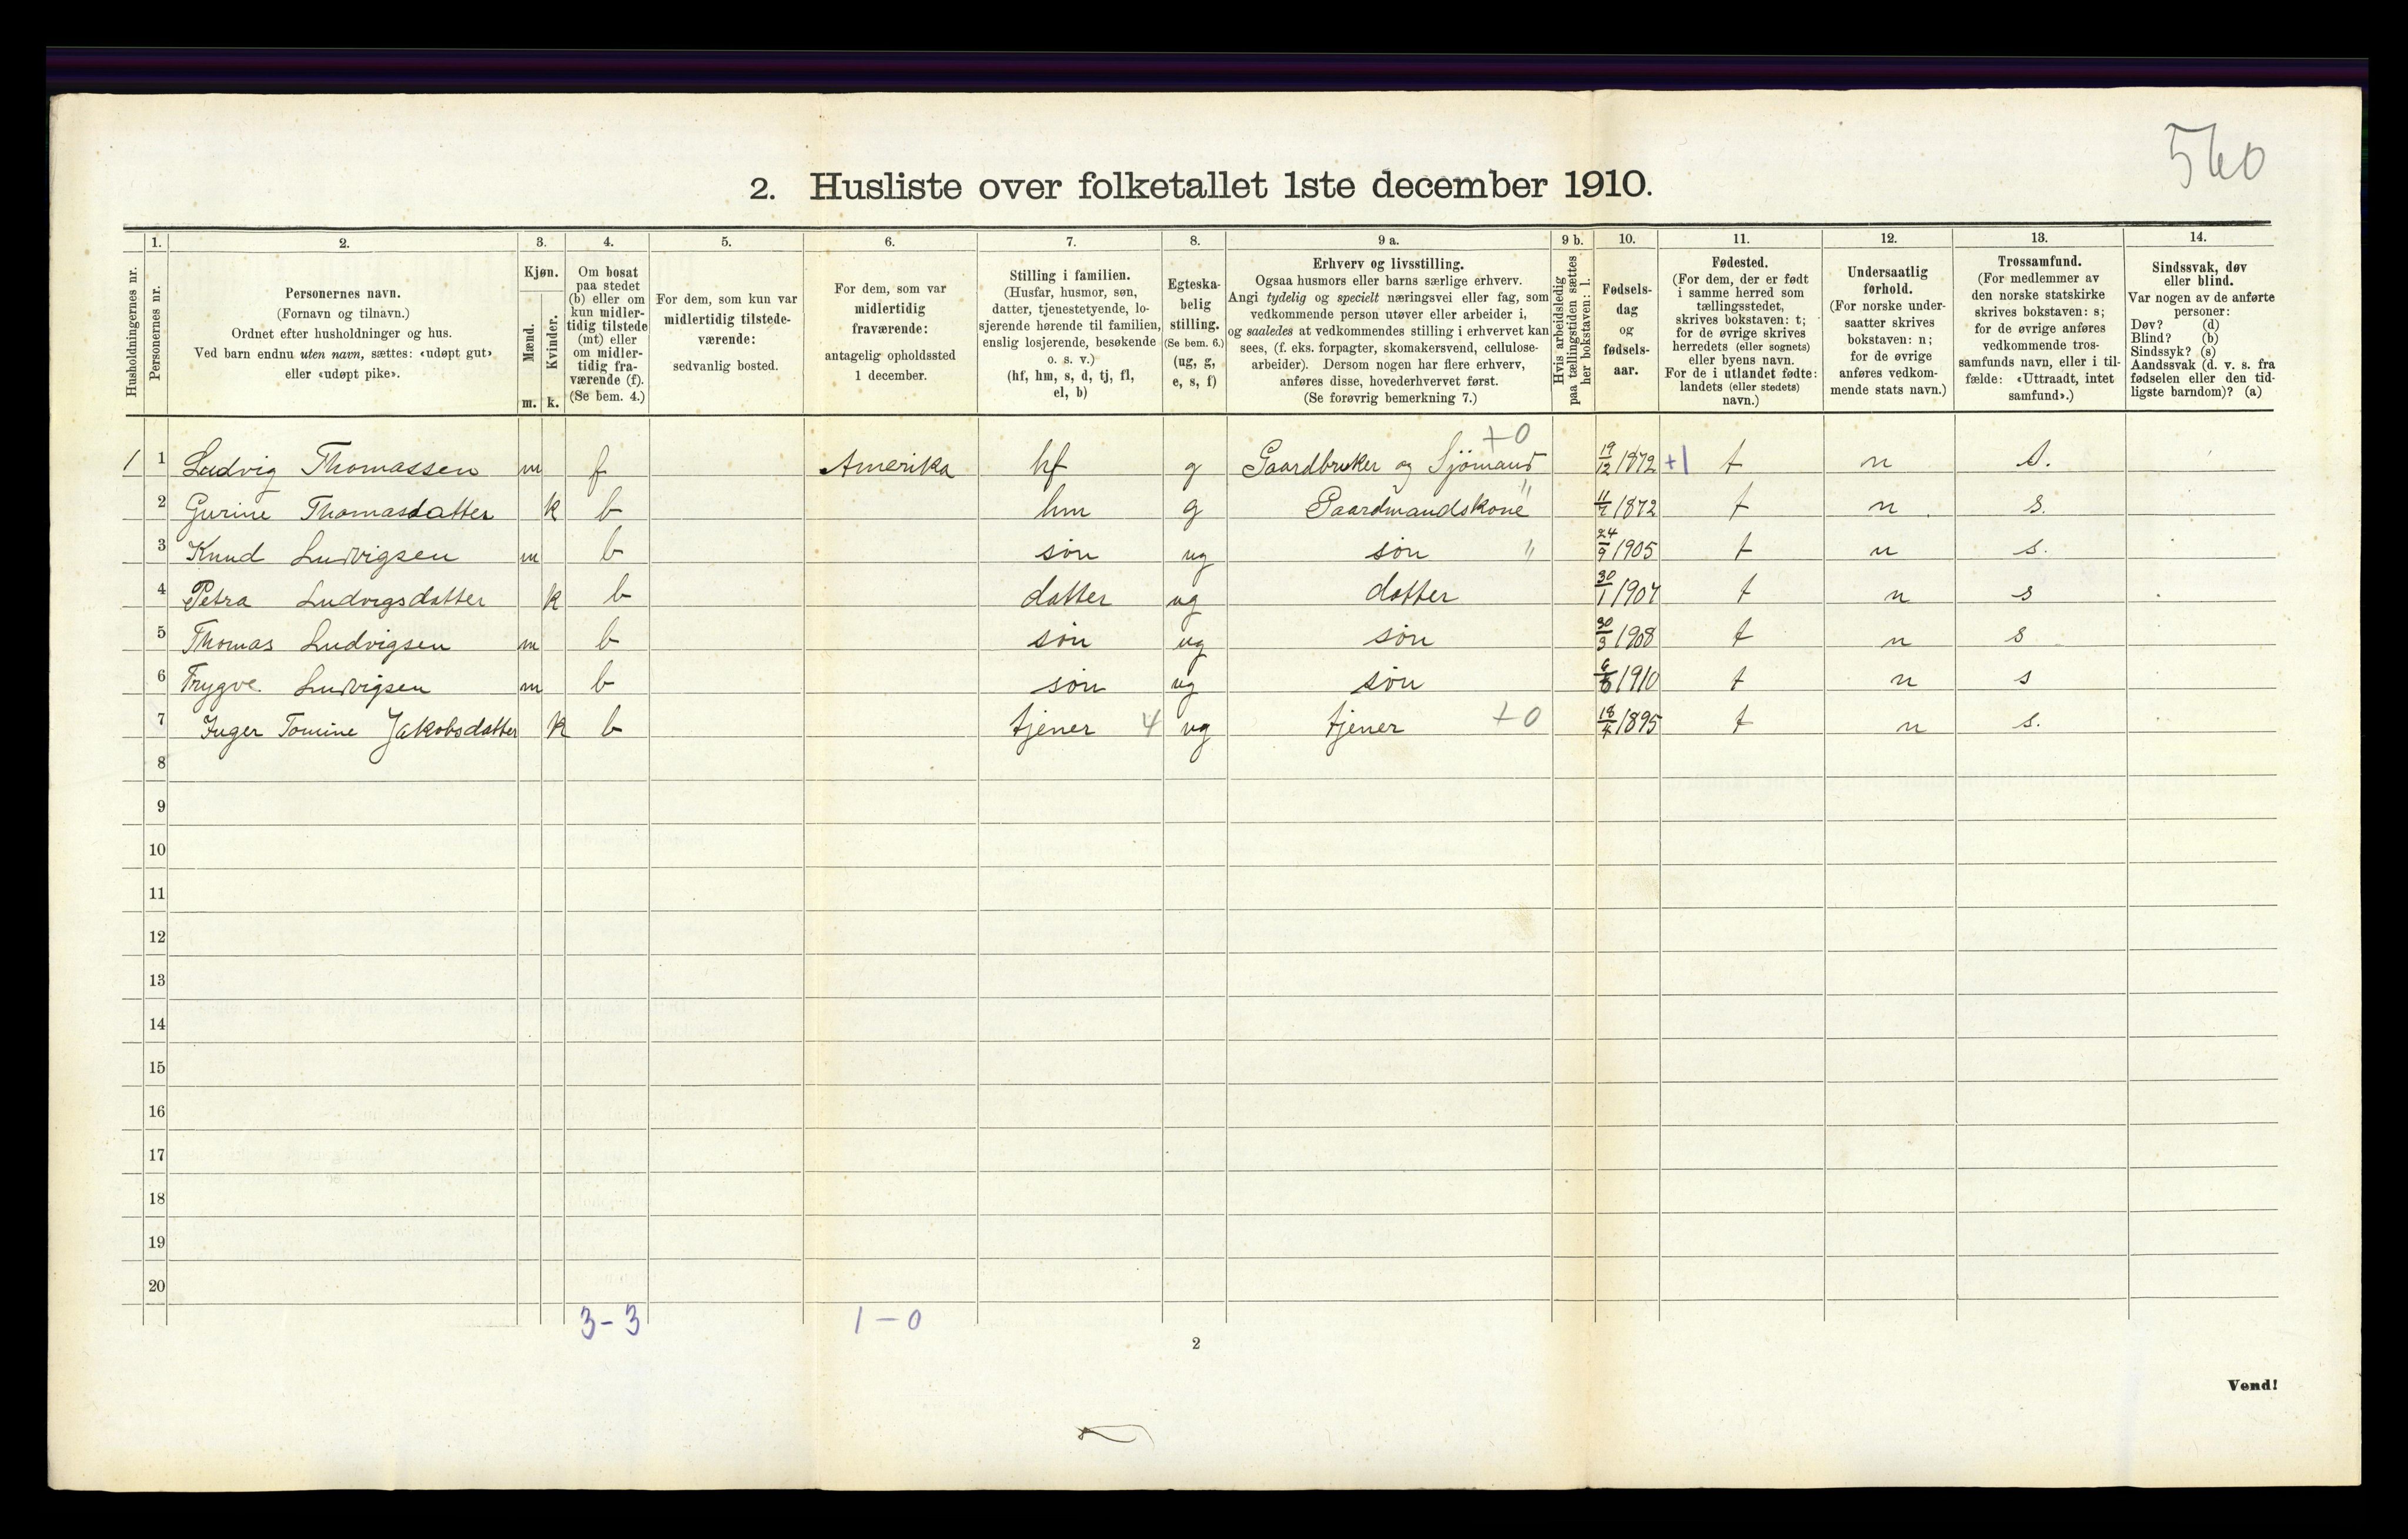 560
2. Husliste over folketallet 1ste december 1910.
Husholdningernes nr.
1.
Personernes nr.
2.
Personernes navn.
(Fornavn og tilnavn.)
Ordnet efter husholdninger og hus.
Ved barn endnu uten navn, sættes: «udøpt gut»
eller «udøpt pike».
3.
Kjøn.
Mænd.
Kvinder.
m. k.
4.
Om bosat
paa stedet
(b) eller om
kun midler-
tidig tilstede
(mt) eller
om midler-
tidig fra-
værende (f).
(Se bem. 4.)
5.
For dem, som kun var
midlertidig tilstede-
værende:
sedvanlig bosted.
6.
For dem, som var
midlertidig
fraværende:
antagelig opholdssted
1 december.
7.
Stilling i familien.
(Husfar, husmor, søn,
datter, tjenestetyende, lo-
sjerende hørende til familien,
enslig losjerende, besøkende
o. s. v.)
(hf, hm, s, d, tj, fl,
el, b)
8.
Egteska-
belig
stilling.
(Se bem. 6.)
(ug, g,
e, s, f)
9 a.
Erhverv og livsstilling.
Ogsaa husmors eller barns særlige erhverv.
Angi tydelig og specielt næringsvei eller fag, som
vedkommende person utøver eller arbeider i,
og saaledes at vedkommendes stilling i erhvervet kan
sees, (f. eks. forpagter, skomakersvend, cellulose-
arbeider). Dersom nogen har flere erhverv,
anføres disse, hovederhvervet først.
(Se forøvrig bemerkning 7.)
9 b.
Hvis arbeidsledig
paa tællingstiden sættes
her bokstaven: l.
10.
Fødsels-
dag
og
fødsels-
aar.
11.
Fødested.
(For dem, der er født
i samme herred som
tællingsstedet,
skrives bokstaven: t;
for de øvrige skrives
herredets (eller sognets)
eller byens navn.
For de i utlandet fødte:
landets (eller stedets)
navn.)
12.
Undersaatlig
forhold.
(For norske under-
saatter skrives
bokstaven: n;
for de øvrige
anføres vedkom-
mende stats navn.)
13.
Trossamfund.
(For medlemmer av
den norske statskirke
skrives bokstaven: s;
for de øvrige anføres
vedkommende tros-
samfunds navn, eller i til-
fælde: «Uttraadt, intet
samfund».)
14.
Sindssvak, døv
eller blind.
Var nogen av de anførte
personer:
Døv? (d)
Blind? (b)
Sindssyk? (s)
Aandssvak (d. v. s. fra
fødselen eller den tid-
ligste barndom)? (a)
+0
1 1 Ludvig Thomassen m f Amerika hf g Gaardbruker og Sjömand 19/12 1872 +1 t n s.
2 Gurine Thomasdatter k b hm g Gaardmandskone " 11/7 1872 t n s.
3 Knud Ludvigsen m b søn ug søn " 24/9 1905 t n s.
4 Petra Ludvigsdatter k b datter ug datter 30/1 1907 t n s
5 Thomas Ludvigsen m b søn ug søn 30/3 1908 t n s
6 Trygve Ludvigsen m b søn ug søn 1910 t n s
7 Inger Tomine Jakobsdatter k b tjener 4 ug tjener +0 18/4 1895 t n s.
8
9
10
11
12
13
14
15
16
17
18
19
20
3-3 1-0
2
Vend!